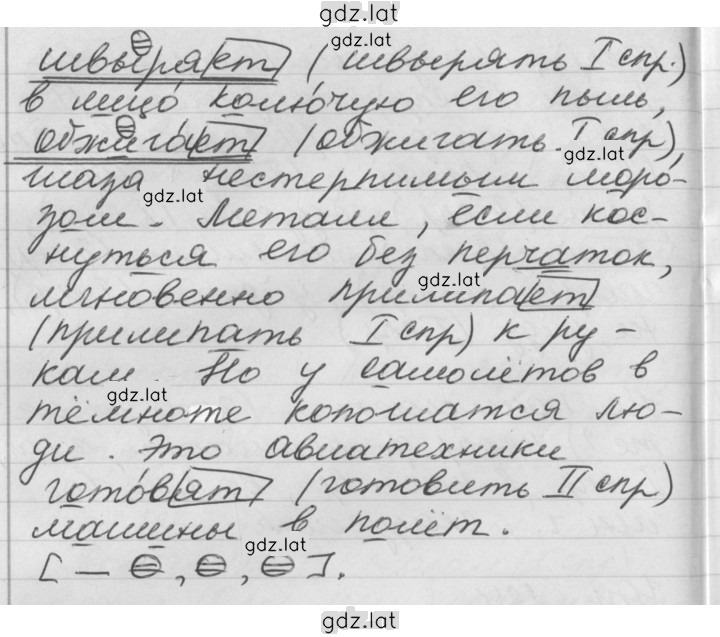 gdz.lat
gdz.lat
швыряет (швырять I спр.)
в лицо́ колю́чую его пыль,
обжига́ет (обжигать I спр),
gdz.lat
глаза нестерпимым моро-
gdz.lat
зом. Металл, если кос-
нуться его без перчаток,
gdz.lat
мгновенно прилипает
(прилипать I спр) к ру-
кам. Но у самолётов в
gdz.lat
темноте копошатся лю-
ди. Это авиатехники
gdz.lat
гото́вят (готовить II спр)
машины в полёт.
gdz.lat
[— =, =, =].
gdz.lat